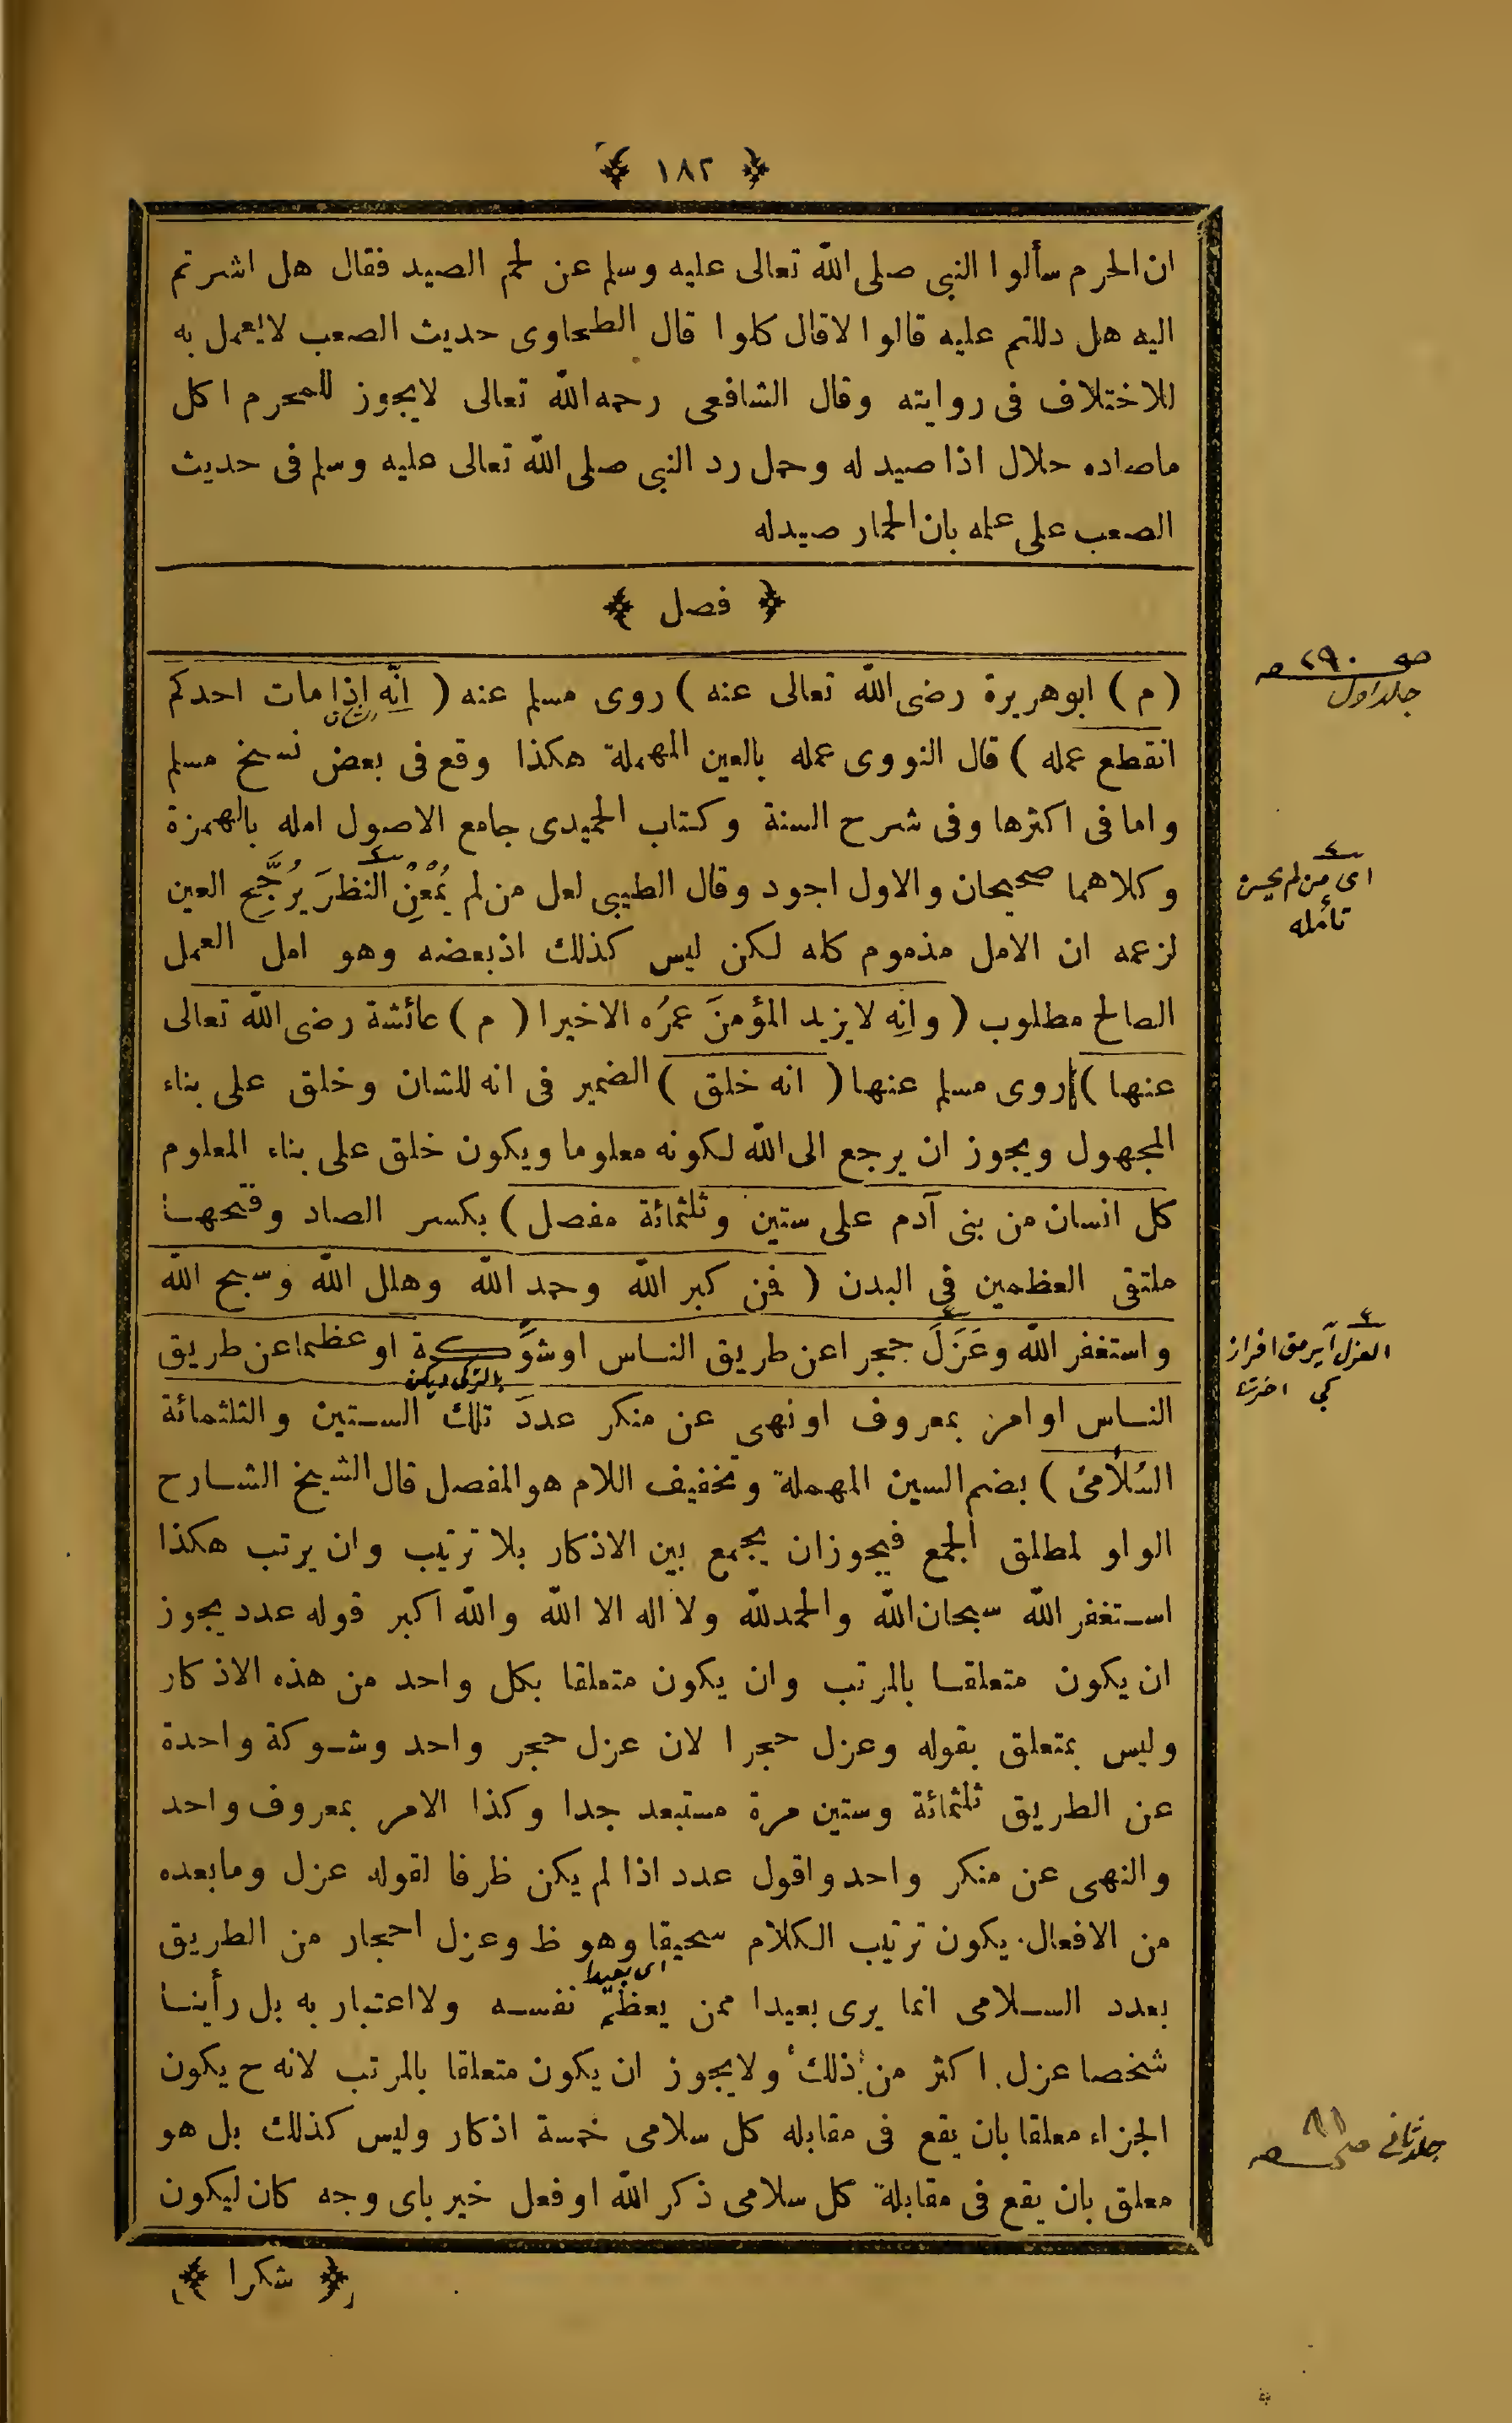 ﴿ ١٨٢ ﴾
ان الحرم سألوا النبى صلى الله تعالى عليه وسلم عن لحم الصيد فقال هل اشرتم
اليه هل دللتم عليه قالوا لا قال كلوا قال الطحاوى حديث الصعب لايعمل به
للاختلاف فى روايته وقال الشافعى رحمه الله تعالى لايجوز للمحرم اكل
ماصاده حلال اذا صيد له وحمل رد النبى صلى الله تعالى عليه وسلم فى حديث
الصعب على علمه بان الحمار صيدله
﴿ فصل ﴾
(م) ابوهريرة رضى الله تعالى عنه) روى مسلم عنه (انّه اذا مات احدكم
انقطع عمله) قال النووى عمله بالعين المهملة هكذا وقع فى بعض نسخ مسلم
واما فى اكثرها وفى شرح السنة وكتاب الحميدى جامع الاصول امله بالهمزة
وكلاهما صحيحان والاول اجود وقال الطيبى لعل من لم يُمْعِنْ النظرَ يُرَجِّح العين
لزعمه ان الامل مذموم كله لكن ليس كذلك اذبعضه وهو امل العمل
الصالح مطلوب (وانِه لايزيد المؤمنَ عمرُه الاخيرا (م) عائشة رضى الله تعالى
عنها) روى مسلم عنها (انه خلق) الضمير فى انه للشان وخلق على بناء
المجهول ويجوز ان يرجع الى الله لكونه معلوما ويكون خلق على بناء المعلوم
كل انسان من بنى آدم على ستين وثلثمائة مفصل) بكسر الصاد وفتحها
ملتقى العظمين فى البدن (فمن كبر الله وحمد الله وهلل الله وسبح الله
واستغفر الله وعَزَلَ حجرا عن طريق الناس اوشوكة او عظما عن طريق
الناس او امر بمعروف اونهى عن منكر عددَ تلك الستين والثلثمائة
السُلامى) بضم السين المهملة وتخفيف اللام هو المفصل قال الشيخ الشارح
الواو لمطلق الجمع فيجوزان يجمع بين الاذكار بلا ترتيب وان يرتب هكذا
استغفر الله سبحان الله والحمدلله ولا اله الا الله والله اكبر قوله عدد يجوز
ان يكون متعلقا بالمرتب وان يكون متعلقا بكل واحد من هذه الاذكار
وليس بمتعلق بقوله وعزل حجرا لان عزل حجر واحد وشوكة واحدة
عن الطريق ثلثمائة وستين مرة مستبعد جدا وكذا الامر بمعروف واحد
والنهى عن منكر واحد واقول عدد اذا لم يكن ظرفا لقوله عزل ومابعده
من الافعال يكون ترتيب الكلام سحيقا وهو ظ وعزل احجار من الطريق
اى بعيدا
بعدد السلامى انما يرى بعيدا ممن يعظّم نفسه ولا اعتبار به بل رأينا
شخصا عزل اكثر من ذلك ولايجوز ان يكون متعلقا بالمرتب لانه ح يكون
الجزاء معلقا بان يقع فى مقابله كل سلامى خمسة اذكار وليس كذلك بل هو
معلق بان يقع فى مقابلة كل سلامى ذكر الله اوفعل خير باى وجه كان ليكون
﴿ شكرا ﴾
صو ٢٩٠
جلد اول
اى من لم يحسن
تأمله
العزل آيرمق افراز
كى
جلد ثانى